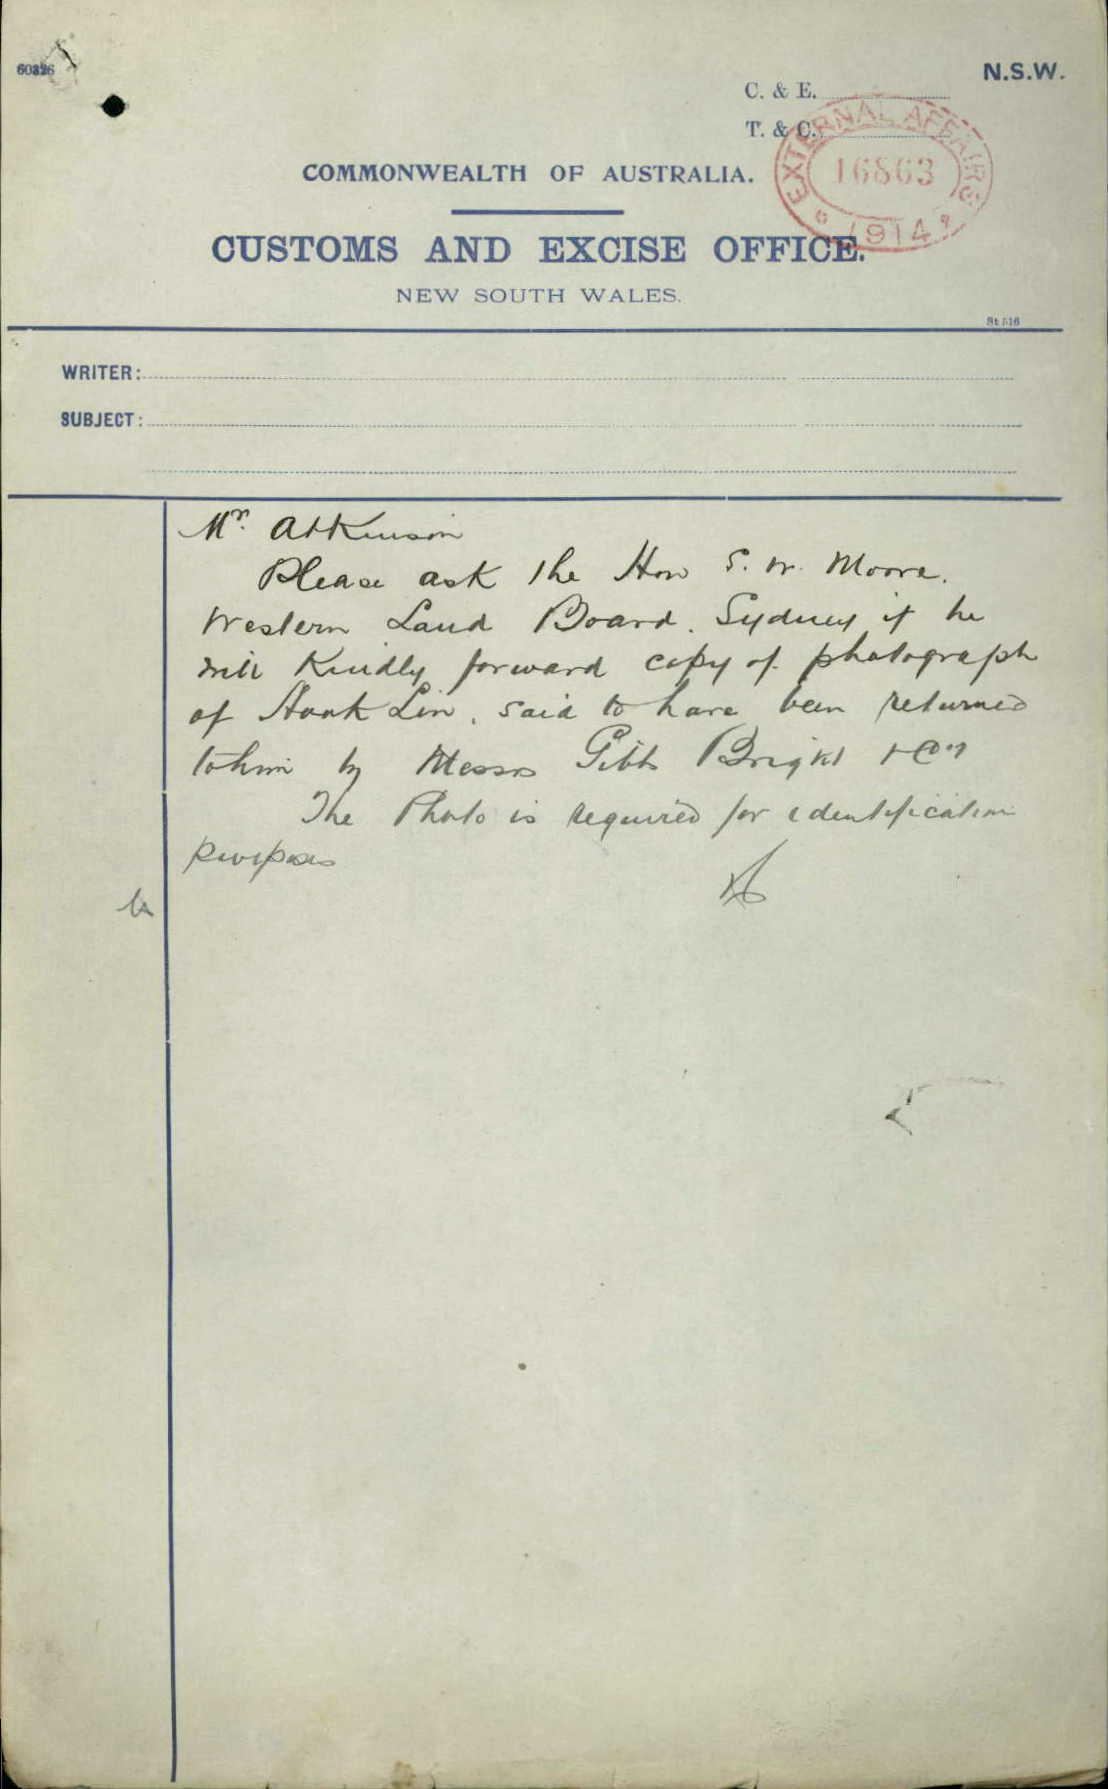 N.S.W.
C. & E.
T. & C.
EXTERNAL AFFAIRS
16863
1914
COMMONWEALTH OF AUSTRALIA.
CUSTOMS AND EXCISE OFFICE.
NEW SOUTH WALES.
St 516
WRITER:
SUBJECT:
Mr. Atkinson
Please ask the Hon S. W. Moore.
Western Land Board. Sydney if he
will kindly forward copy of photograph
of Hook Lin, said to have been returned
to him by Messrs Gibbs Bright & Coy
The Photo is required for identification
purposes